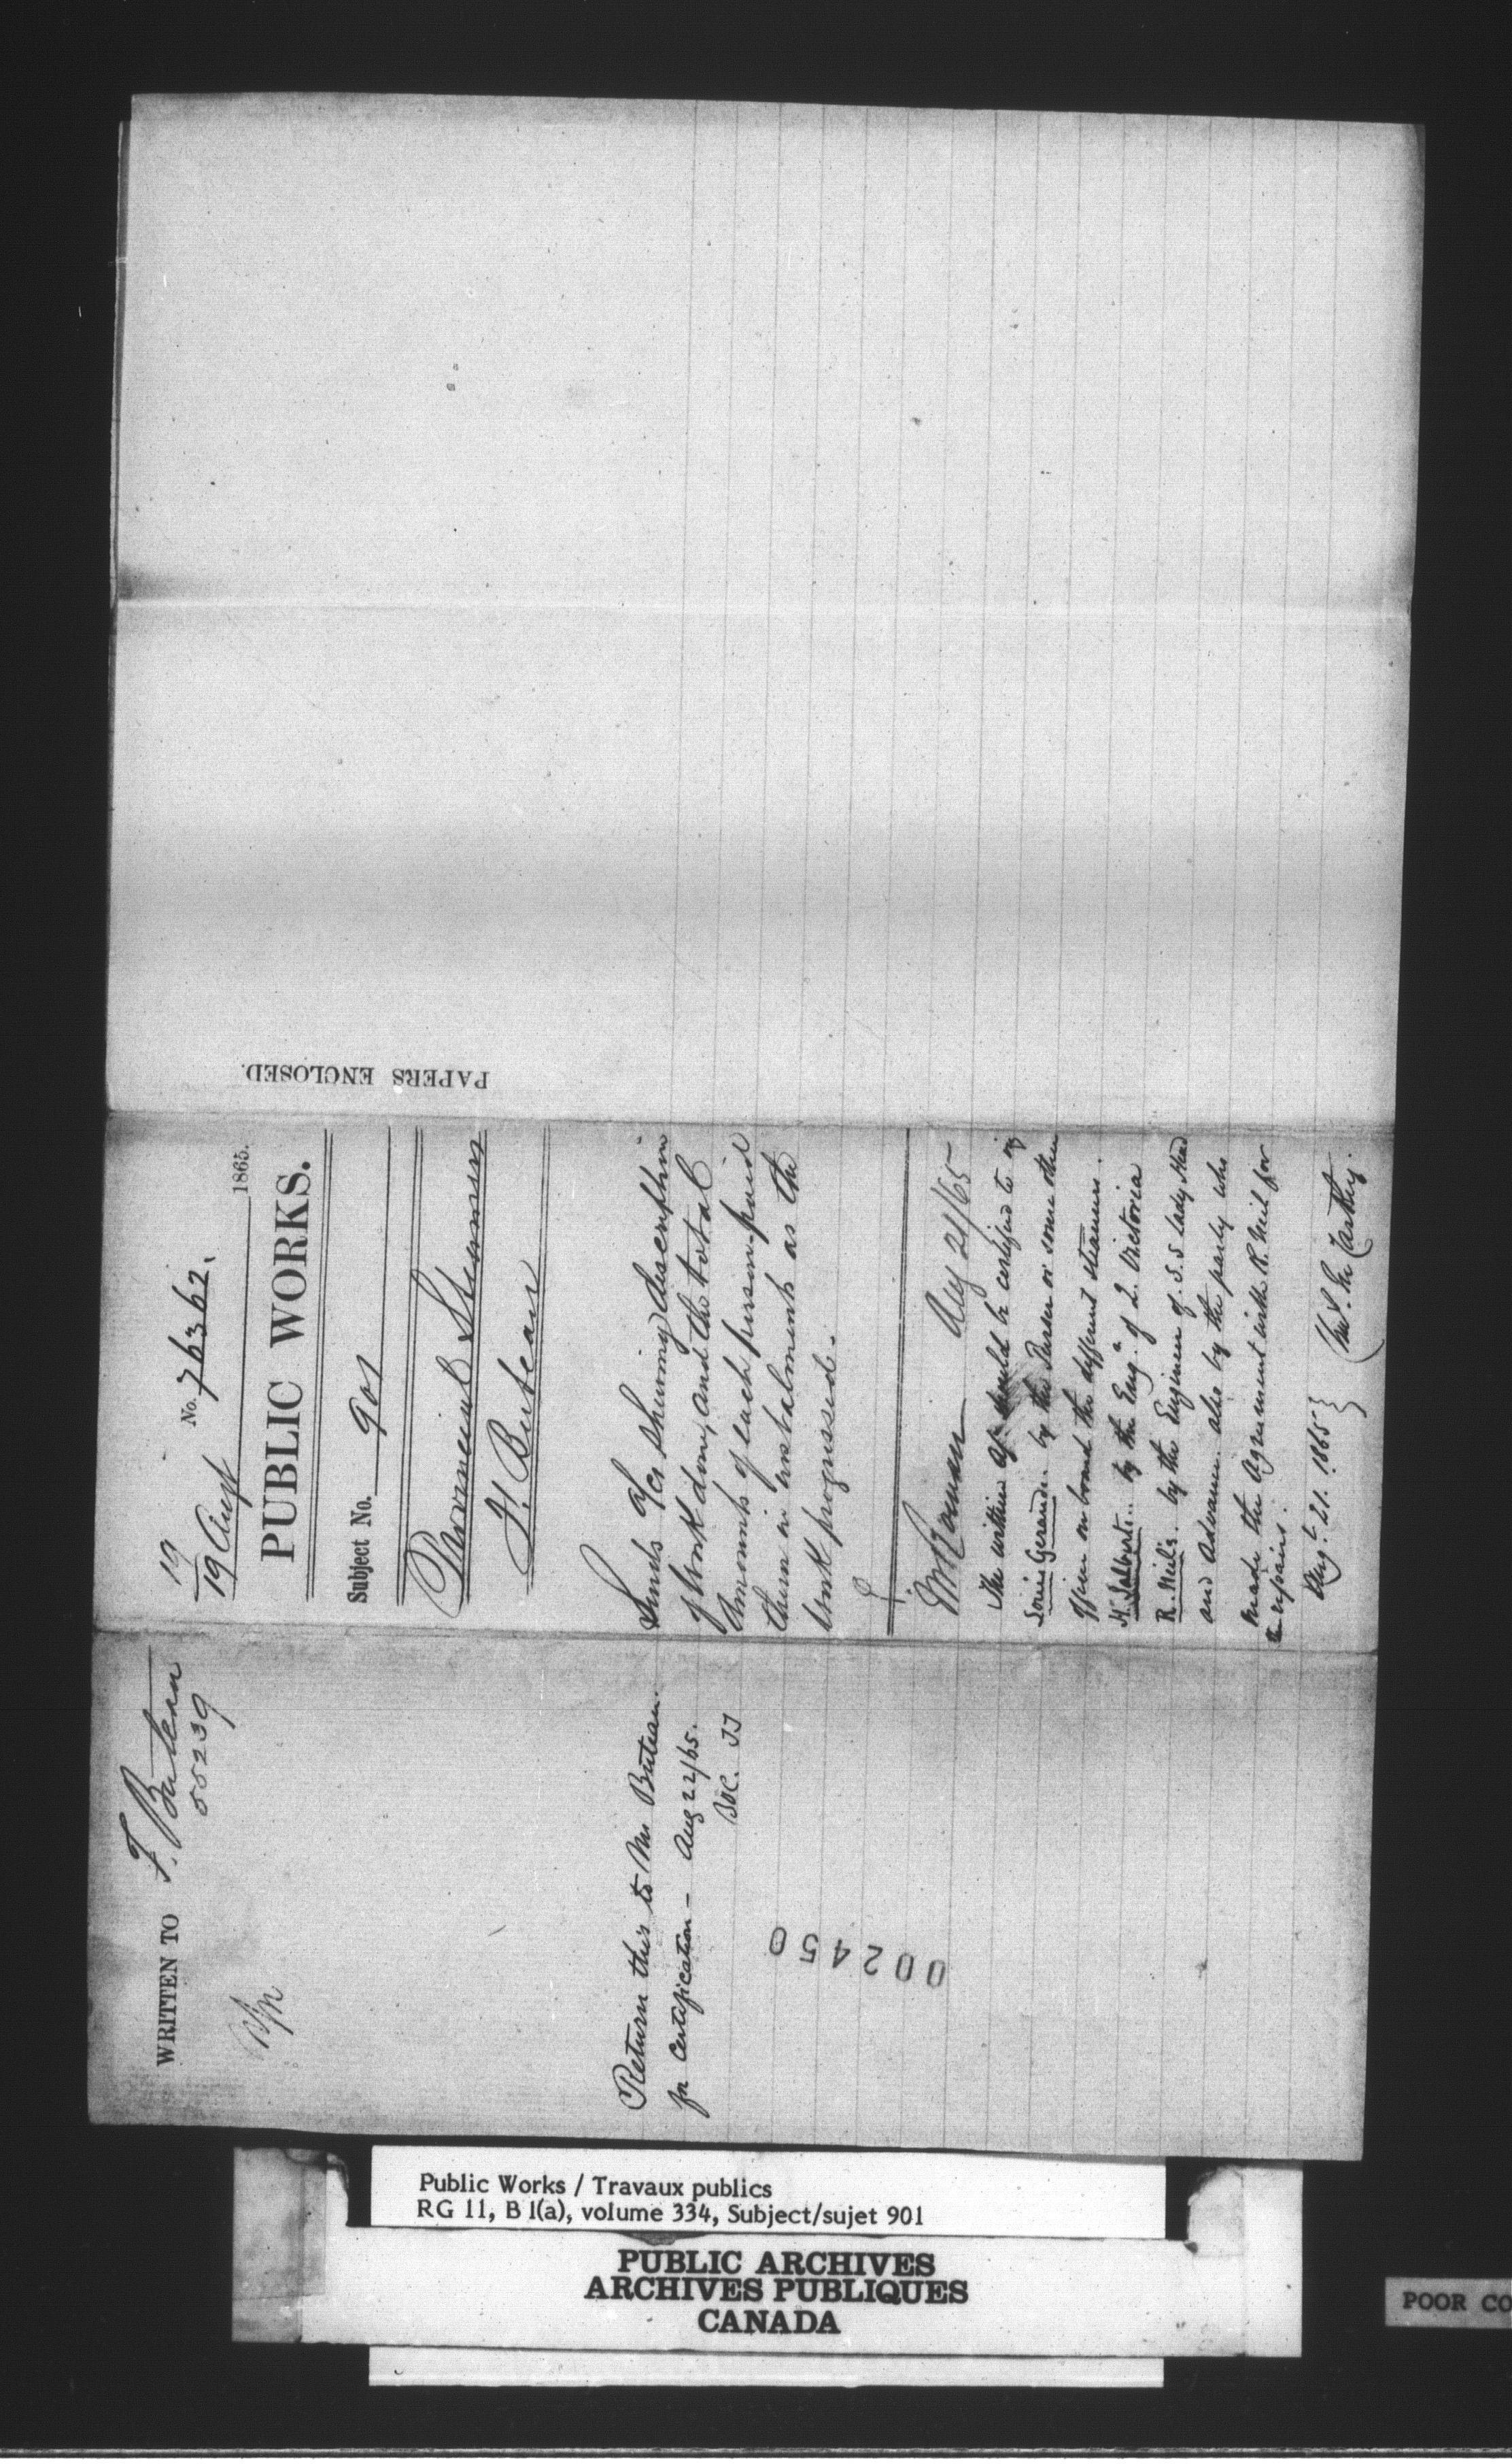 WRITTEN TO F. Buteau
55239
Return this to Mr Buteau
for certification - Aug 22/65.
002450
19
19 Augt No. 76362. 1865.
PUBLIC WORKS.
Subject No. 901
Provincial Steamers
F. Buteau
Sends a/cs shewing description
of work done, and the total
amounts of each person paid
them in instalments as the
work progressed.
Aug 21/65
The within a/cs should be certified to
Louis Geraud.. by the Purser or some other
officer on board the different steamers.
by the Engr. of Q. Victoria
R. Neil's. by the Engineer of S.S. Lady Head
and Advance also by the party who
made the Agreement with R. Neil for
the repairs.
Augt. 21. 1865
PAPERS ENCLOSED.
Public Works / Travaux publics
RG 11, B 1(a), volume 334, Subject/sujet 901
PUBLIC ARCHIVES
ARCHIVES PUBLIQUES
CANADA
POOR CO